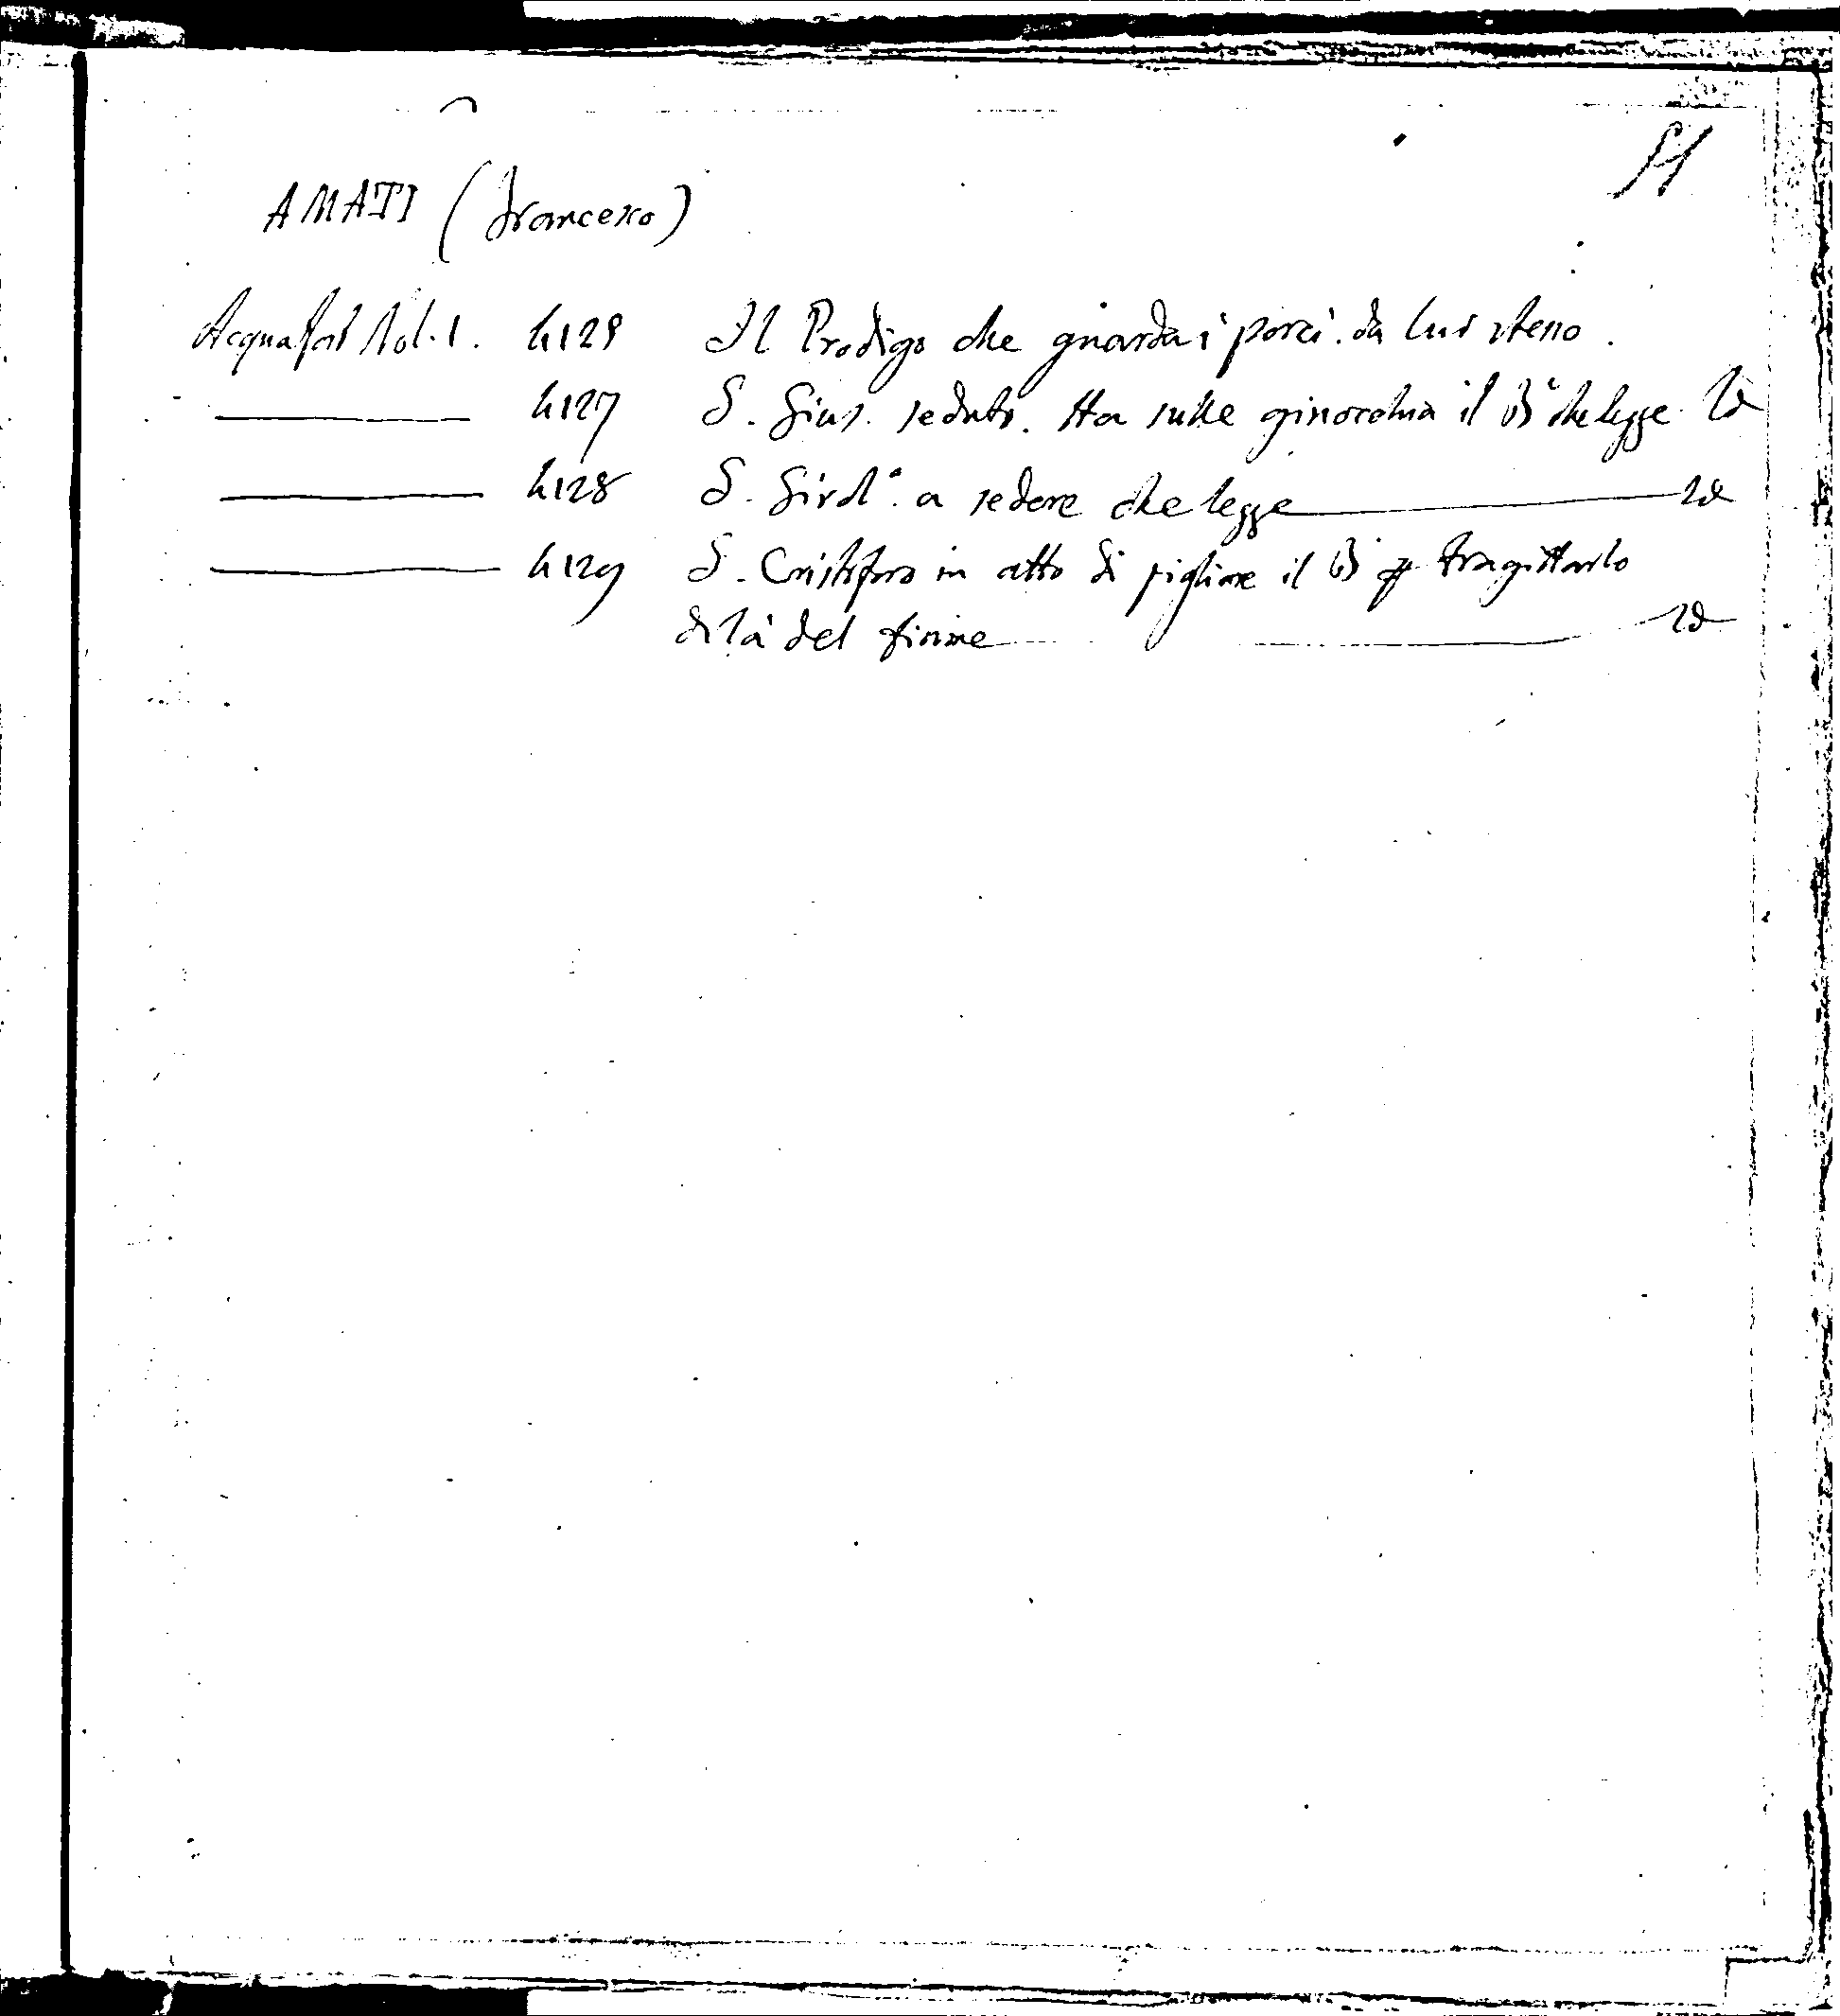 51
AMATI (Francesco)
Acquafort Vol. 1. h 129 Il Prodigo che guarda i porci. da lui stesso.
h 127 S. Gius. seduto. Ha sulle ginocchia il B° che legge. Id
h 128 S. Girol°. a sedere che legge Id
h 129 S. Cristoforo in atto di pigliare il B° p tragittarlo
di là del fiume Id